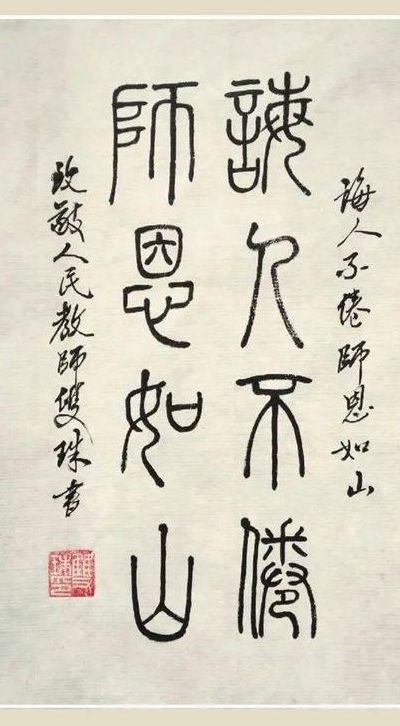 誨人不倦師恩如山
誨人不倦
師恩如山
致敬人民教師雙珠書